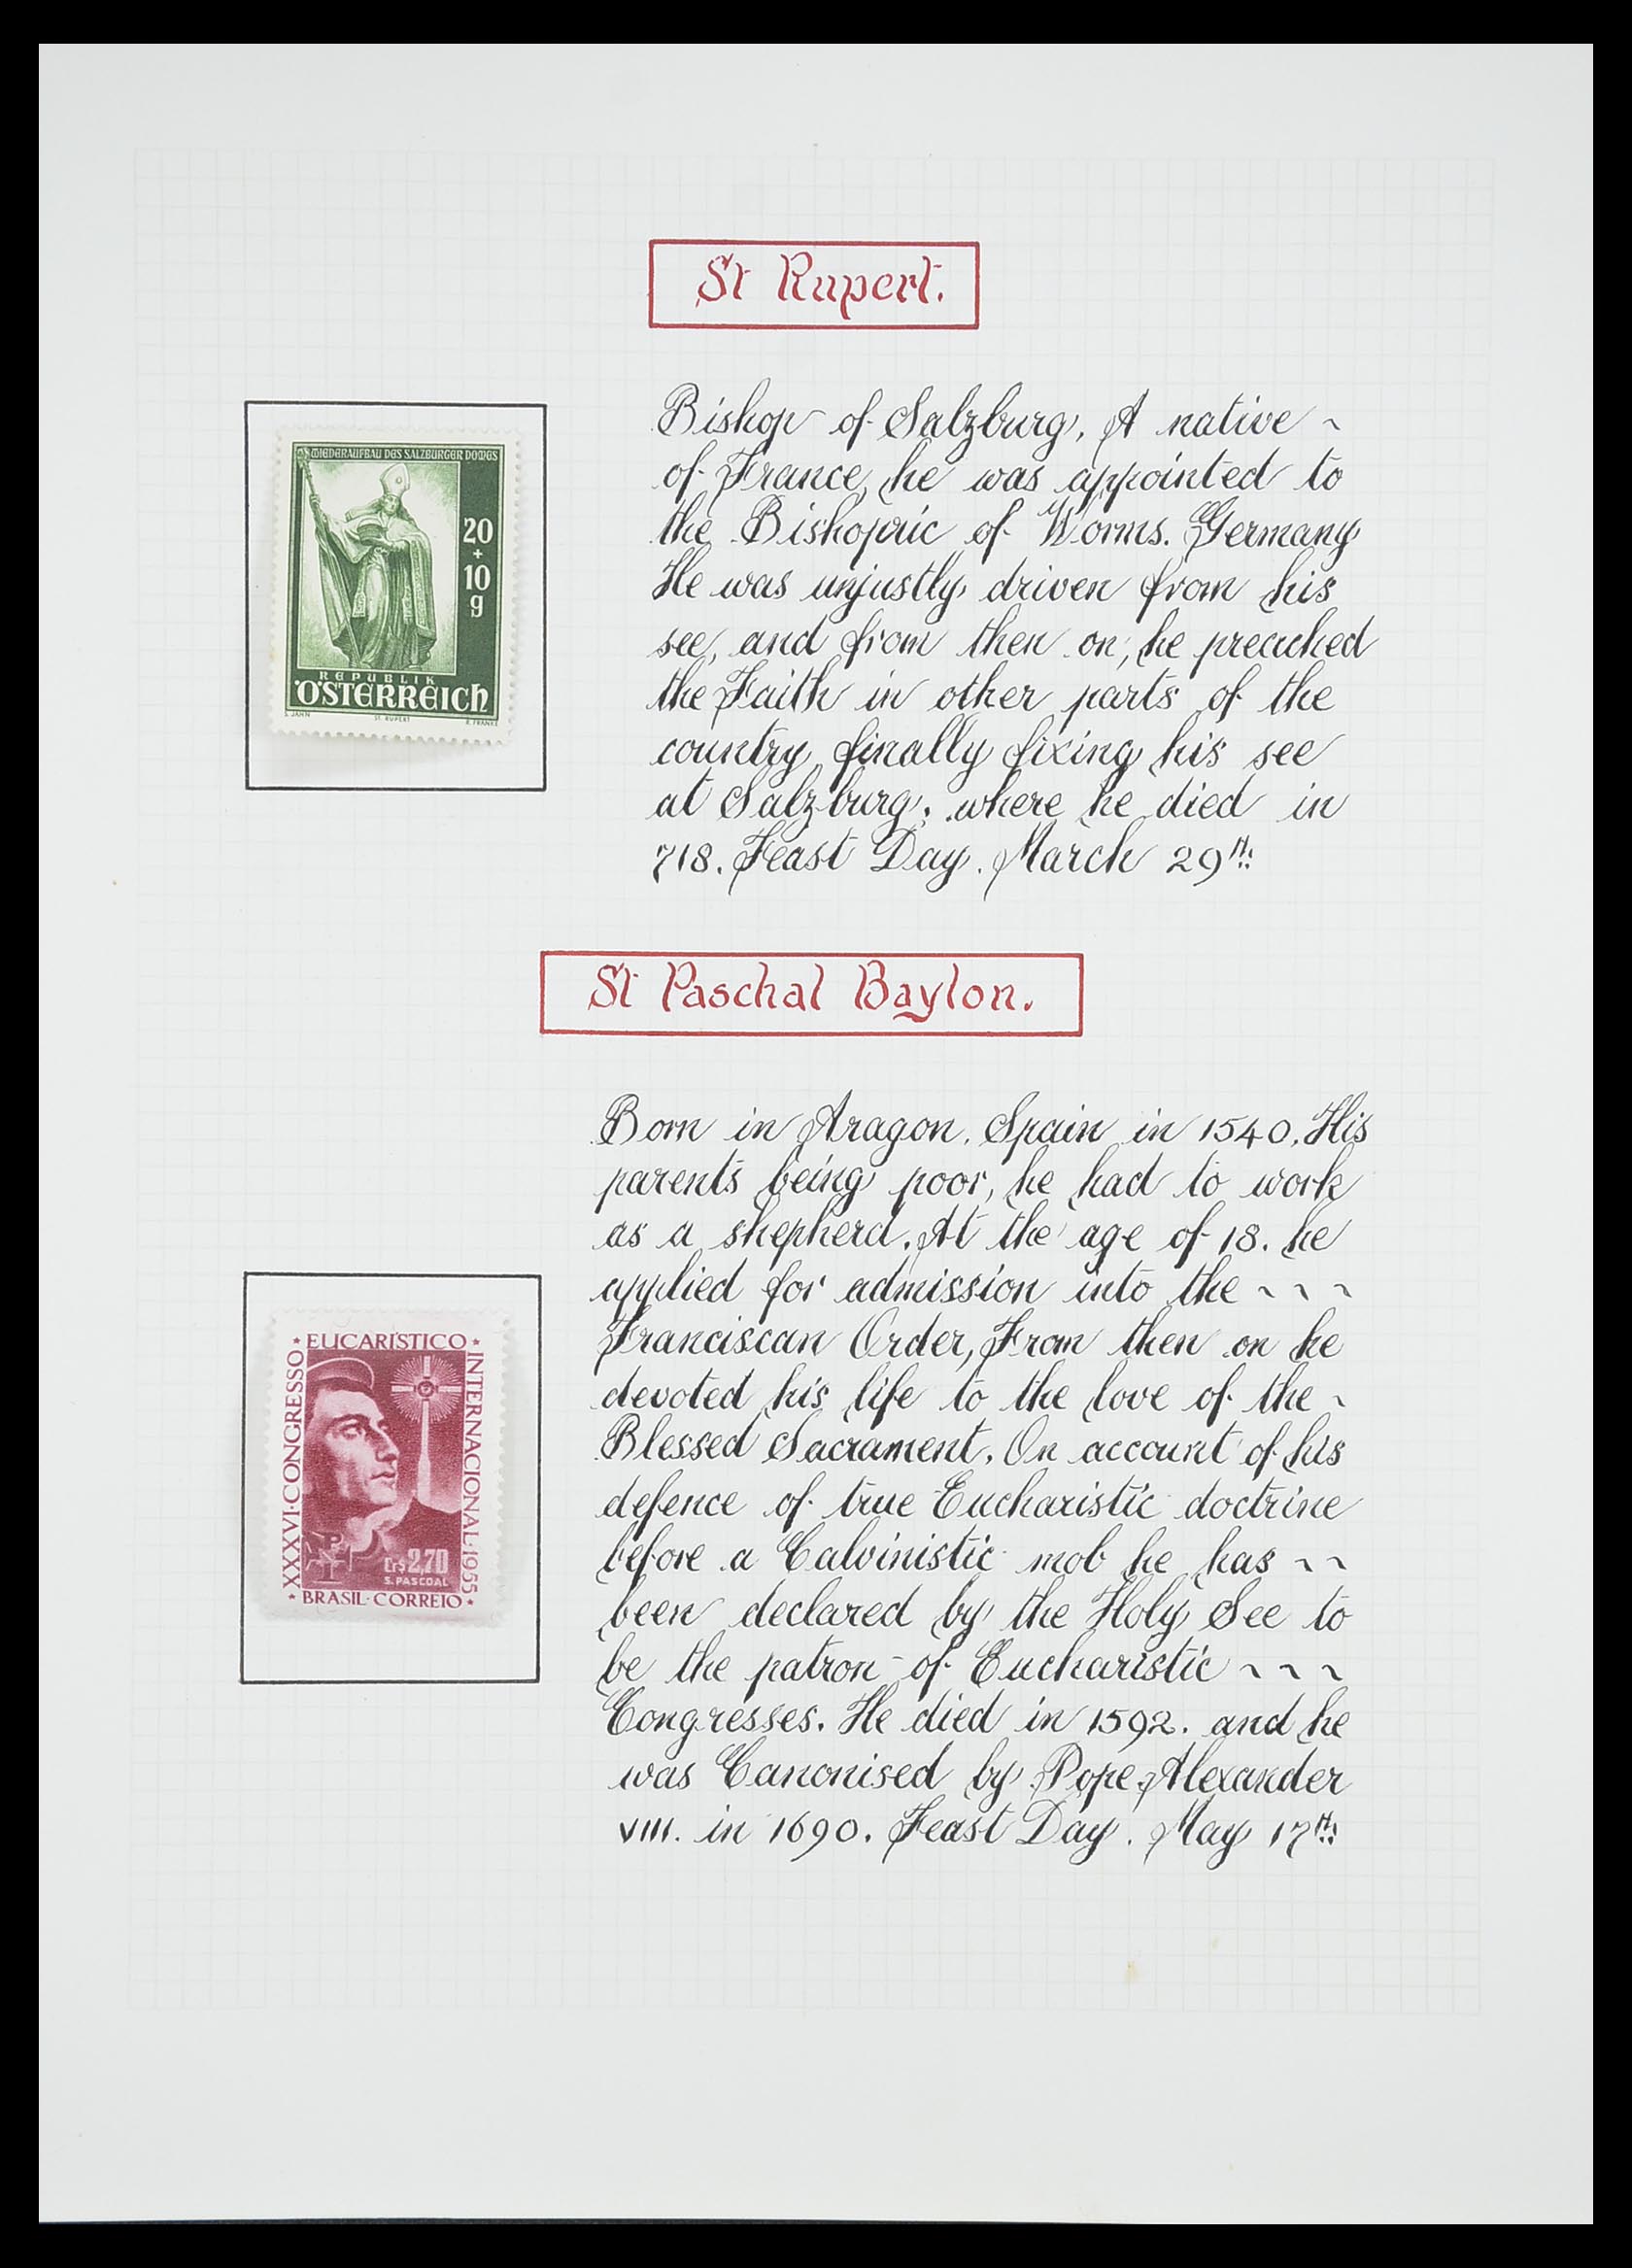 St Rupert.
WIEDERAUFBAU DES SALZBURGER DOMES
20
+
10
g
REPUBLIK
ÖSTERREICH
ST. RUPERT
Bishop of Salzburg. A native ~
of France, he was appointed to
the Bishopric of Worms. Germany
He was unjustly driven from his
see, and from then on, he preached
the Faith in other parts of the
country, finally fixing his see
at Salzburg; where he died in
718. Feast Day. March 29th.
St Paschal Baylon.
* EUCARÍSTICO *
XXXVI·CONGRESSO
INTERNACIONAL·1955
Cr$2,70
S. PASCOAL
* BRASIL·CORREIO *
Born in Aragon. Spain in 1540. His
parents being poor, he had to work
as a shepherd. At the age of 18. he
applied for admission into the ~ ~ ~
Franciscan Order, From then on he
devoted his life to the love of the ~
Blessed Sacrament. On account of his
defence of true Eucharistic doctrine
before a Calvinistic mob he has ~ ~
been declared by the Holy See to
be the patron of Eucharistic ~ ~ ~
Congresses. He died in 1592. and he
was Canonised by Pope Alexander
VIII. in 1690. Feast Day. May 17th.